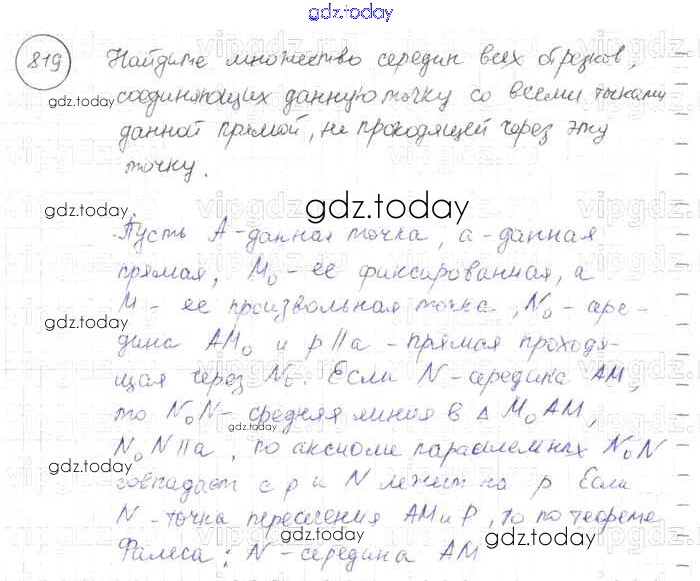 gdz.today
819 Найдите множество середин всех отрезков,
соединяющих данную точку со всеми точками
gdz.today
данной прямой, не проходящей через эту
точку.
gdz.today
gdz.today
Пусть A - данная точка, a - данная
прямая, M₀ - ее фиксированная, а
M - ее произвольная точка, N₀ - сере-
gdz.today
дина AM₀ и p || a - прямая проходя-
щая через N₀. Если N - середина AM,
gdz.today
то N₀N - средняя линия в △ M₀AM,
N₀N || a, по аксиоме параллельных N₀N
gdz.today
совпадает с p и N лежит на p Если
N - точка пересечения AM и P, то по теореме
gdz.today
Фалеса: N - середина AM